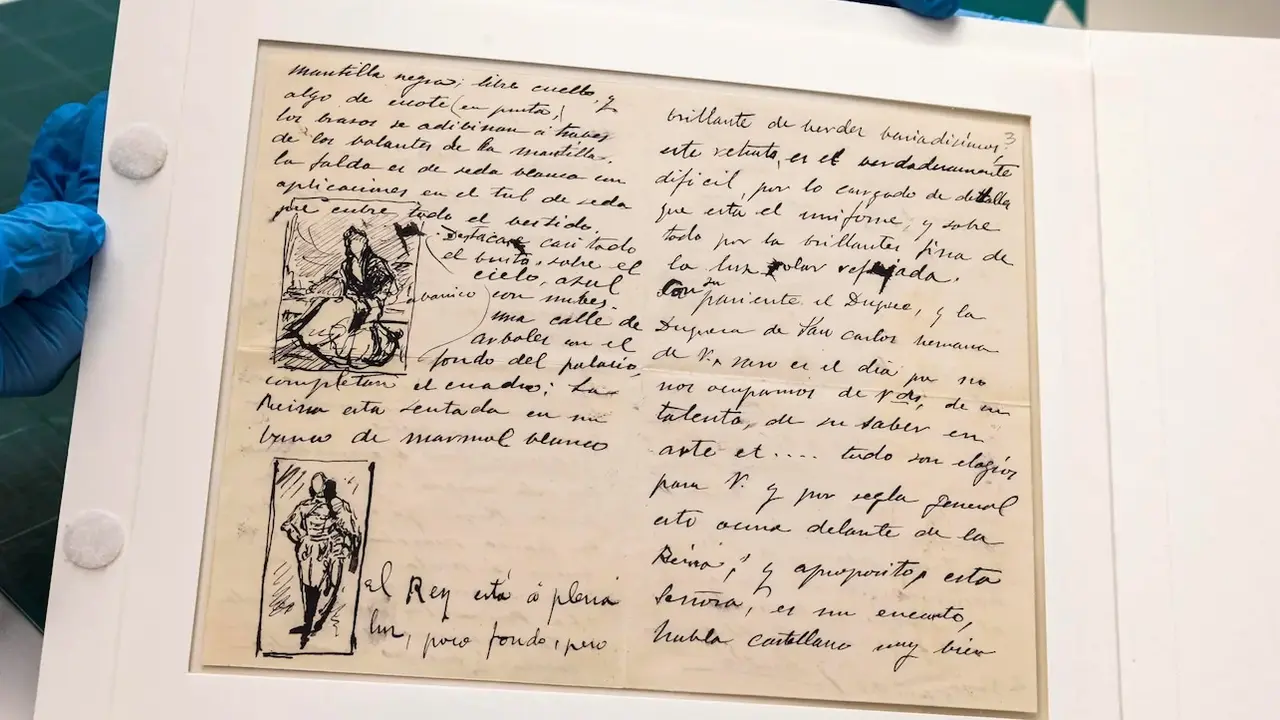 mantilla negra; libre cuello, y
algo de escote (en punta,)
los brasos se adibinan á traves
de los bolantes de la mantilla.
la falda es de seda blanca con
aplicaciones en el tul de seda
que cubre todo el vestido.
Destacase casi todo
el busto, sobre el
cielo, azul
abanico) con nubes.
una calle de
arboles con el
fondo del palacio,
completan el cuadro; La
Reina esta sentada en un
banco de marmol blanco
el Rey está á plena
luz, poco fondo, pero
3
brillante de berdes bariadisimos,
este retrato, es el verdaderamente
dificil, por lo cargado de detalles
que esta el uniforme, y sobre
todo por la brillantes fina de
la luz solar reflejada.
Con su pariente el Duque, y la
Duquesa de San Carlos hermana
de V. raro es el dia que no
nos ocupamos de Vds, de su
talento, de su saber en
arte et.... todo son elogios
para V. y por regla general
esto ocurre delante de la
Reina; y aproposito, esta
Señora, es un encanto,
habla castellano muy bien